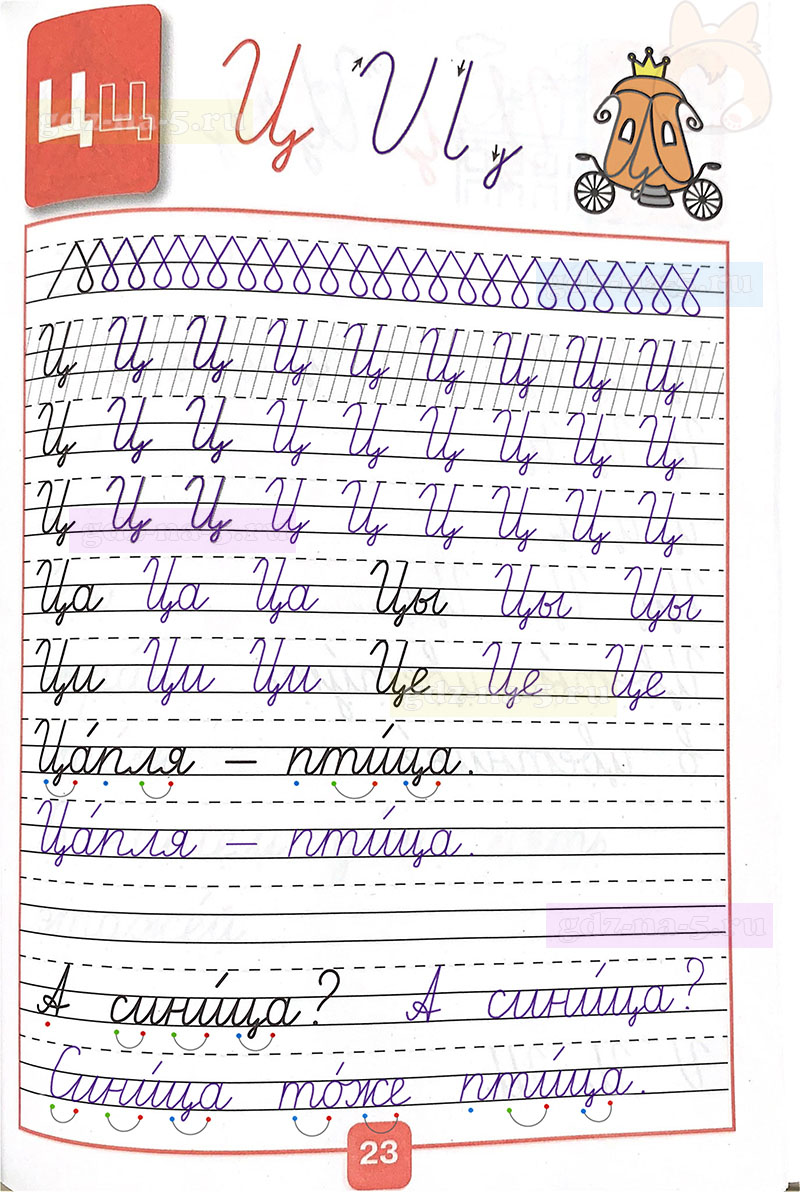 Цц Ц
gdz-na-5.ru
gdz-na-5.ru
Ц Ц Ц Ц Ц Ц Ц Ц Ц
Ц Ц Ц Ц Ц Ц Ц Ц Ц
Ц Ц Ц Ц Ц Ц Ц Ц Ц
gdz-na-5.ru
Ца Ца Ца Цы Цы Цы
Ци Ци Ци Це Це Це
gdz-na-5.ru
Ца́пля – пти́ца.
Ца́пля – пти́ца.
gdz-na-5.ru
А сини́ца? А сини́ца?
Сини́ца то́же пти́ца.
23